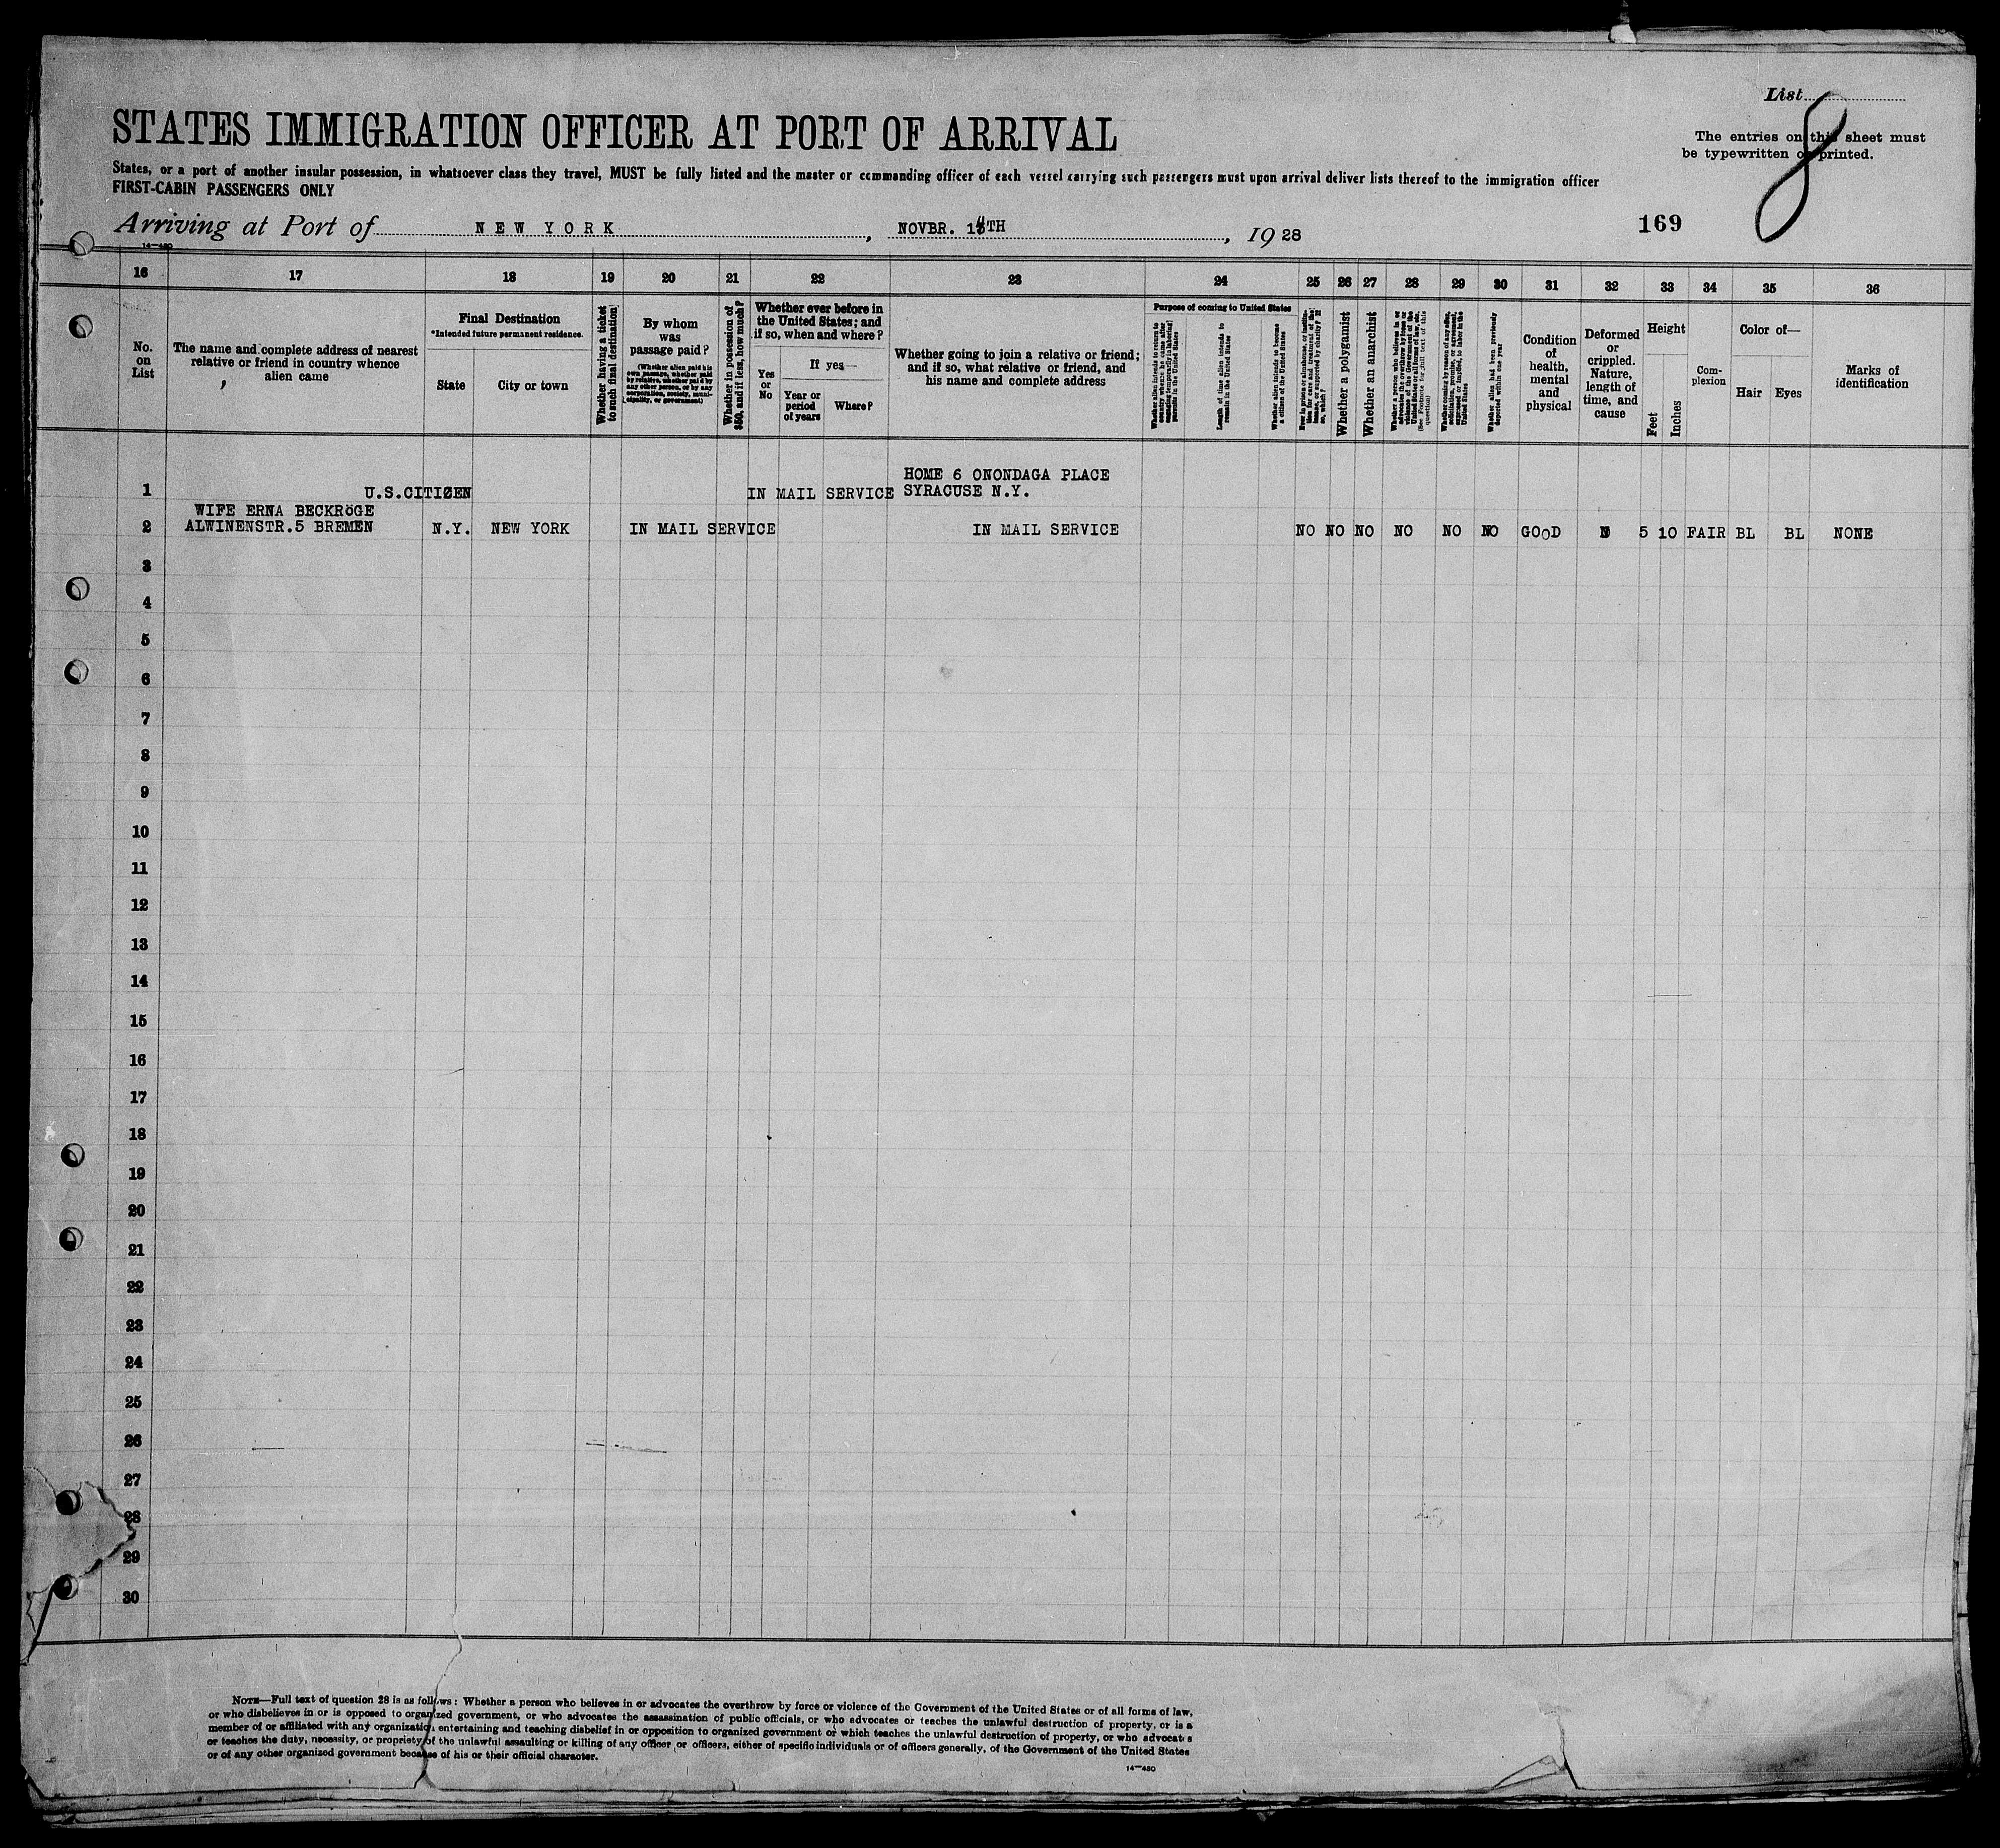 List
8
STATES IMMIGRATION OFFICER AT PORT OF ARRIVAL
The entries on this sheet must
be typewritten or printed.
States, or a port of another insular possession, in whatsoever class they travel, MUST be fully listed and the master or commanding officer of each vessel carrying such passengers must upon arrival deliver lists thereof to the immigration officer
FIRST-CABIN PASSENGERS ONLY
Arriving at Port of NEW YORK, NOVBR. TH, 1928
169
14—480
16 17 18 19 20 21 22 23 24 25 26 27 28 29 30 31 32 33 34 35 36
No. on List
The name and complete address of nearest relative or friend in country whence alien came
,
Final Destination
*Intended future permanent residence.
State
City or town
Whether having a ticket to such final destination
By whom was passage paid?
(Whether alien paid his own passage, whether paid by relative, whether paid by any other person, or by any corporation, society, municipality, or government)
Whether in possession of $50, and if less, how much?
Whether ever before in the United States; and if so, when and where?
Yes or No
If yes—
Year or period of years
Where?
Whether going to join a relative or friend; and if so, what relative or friend, and his name and complete address
Purpose of coming to United States
Length of time alien intends to remain in the United States
Whether alien intends to become a citizen of the United States
Whether a polygamist
Whether an anarchist
Whether alien had been previously deported within one year
Condition of health, mental and physical
Deformed or crippled. Nature, length of time, and cause
Height
Feet
Inches
Com-plexion
Color of—
Hair
Eyes
Marks of identification
1 U.S.CITIZEN IN MAIL SERVICE HOME 6 ONONDAGA PLACE
SYRACUSE N.Y.
WIFE ERNA BECKRÖGE
2 ALWINENSTR.5 BREMEN N.Y. NEW YORK IN MAIL SERVICE IN MAIL SERVICE NO NO NO NO NO NO GOOD 5 10 FAIR BL BL NONE
3
4
5
6
7
8
9
10
11
12
13
14
15
16
17
18
19
20
21
22
23
24
25
26
27
28
29
30
NOTE—Full text of question 28 is as follows: Whether a person who believes in or advocates the overthrow by force or violence of the Government of the United States or of all forms of law,
or who disbelieves in or is opposed to organized government, or who advocates the assassination of public officials, or who advocates or teaches the unlawful destruction of property, or is a
member of or affiliated with any organization entertaining and teaching disbelief in or opposition to organized government or which teaches the unlawful destruction of property, or who advocates
or teaches the duty, necessity, or propriety of the unlawful assaulting or killing of any officer or officers, either of specific individuals or of officers generally, of the Government of the United States
or of any other organized government because of his or their official character.
14—480